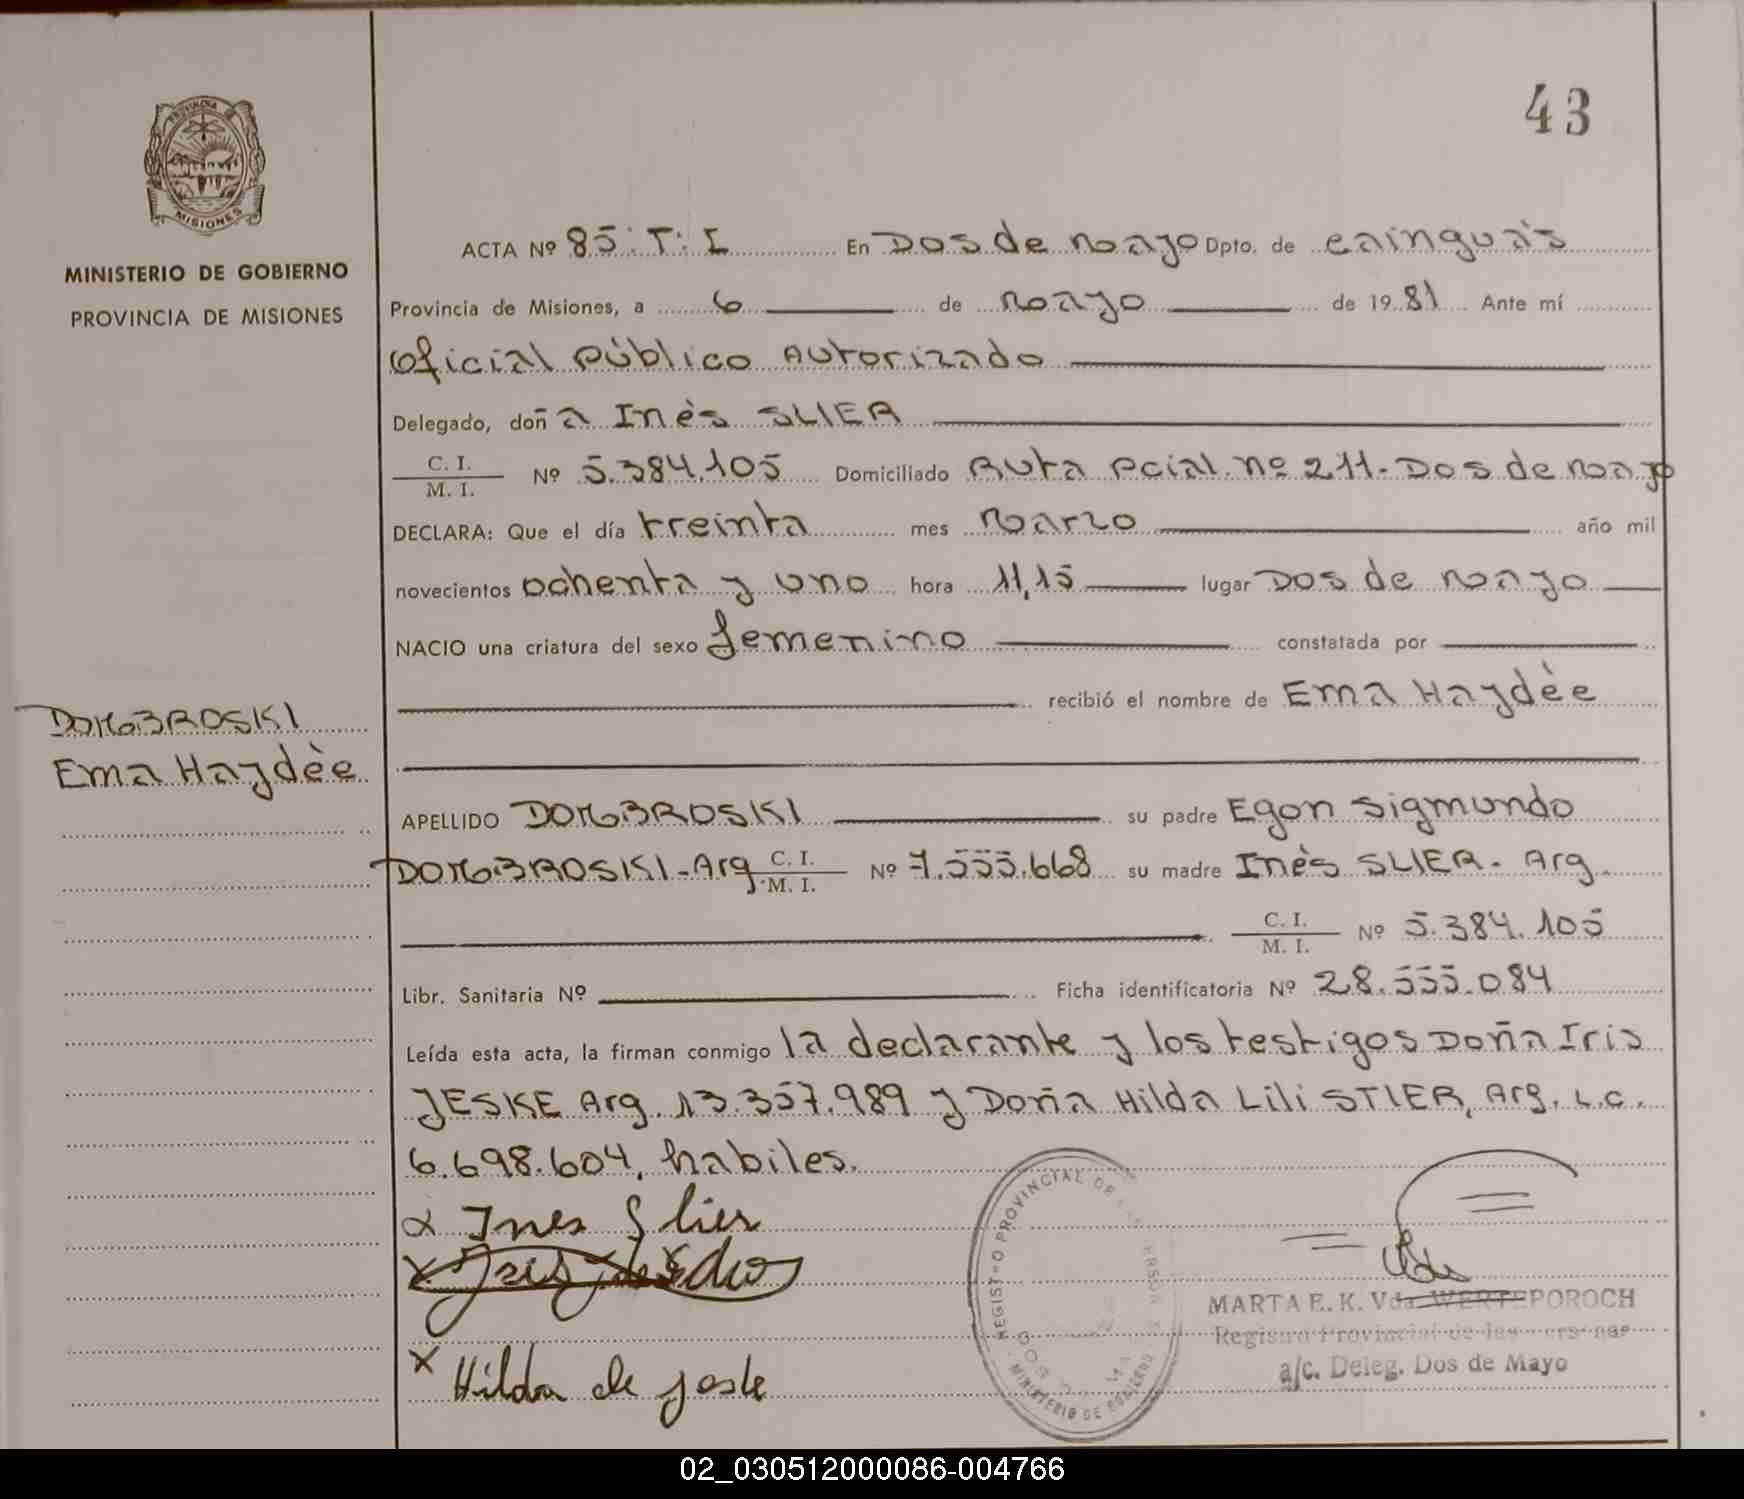 43
PROVINCIA DE
MISIONES
MINISTERIO DE GOBIERNO
PROVINCIA DE MISIONES
DOMBROSKI
Ema Haydèe
ACTA Nº 85:T:I En Dos de Mayo Dpto. de Cainguàs
Provincia de Misiones, a 6 de Mayo de 1981 Ante mí
Oficial Público Autorizado
Delegado, doña Inès SLIER
C. I.
M. I. Nº 5.384.105 Domiciliado Ruta Pcial. Nº 211-Dos de Mayo
DECLARA: Que el día treinta mes Marzo año mil
novecientos ochenta y uno hora 11,15 lugar Dos de Mayo
NACIO una criatura del sexo femenino constatada por
recibió el nombre de Ema Haydèe
APELLIDO DOMBROSKI su padre Egon Sigmundo
DOMBROSKI-Arg C. I.
M. I. Nº 7.555.668 su madre Inès SLIER- Arg.
C. I.
M. I. Nº 5.384.105
Libr. Sanitaria Nº Ficha identificatoria Nº 28.555.084
Leída esta acta, la firman conmigo la declarante y los testigos Doña Iris
JESKE Arg. 13.357.989 y Doña Hilda Lili STIER, Arg. L.C.
6.698.604, habiles.
Ines Slier
x Hilda de Jeske
REGISTRO PROVINCIAL DE
MINISTERIO DE GOBIERNO
MARTA E. K. Vda. WERTEPOROCH
Registro Provincial de las Personas
a/c. Deleg. Dos de Mayo
02_030512000086-004766